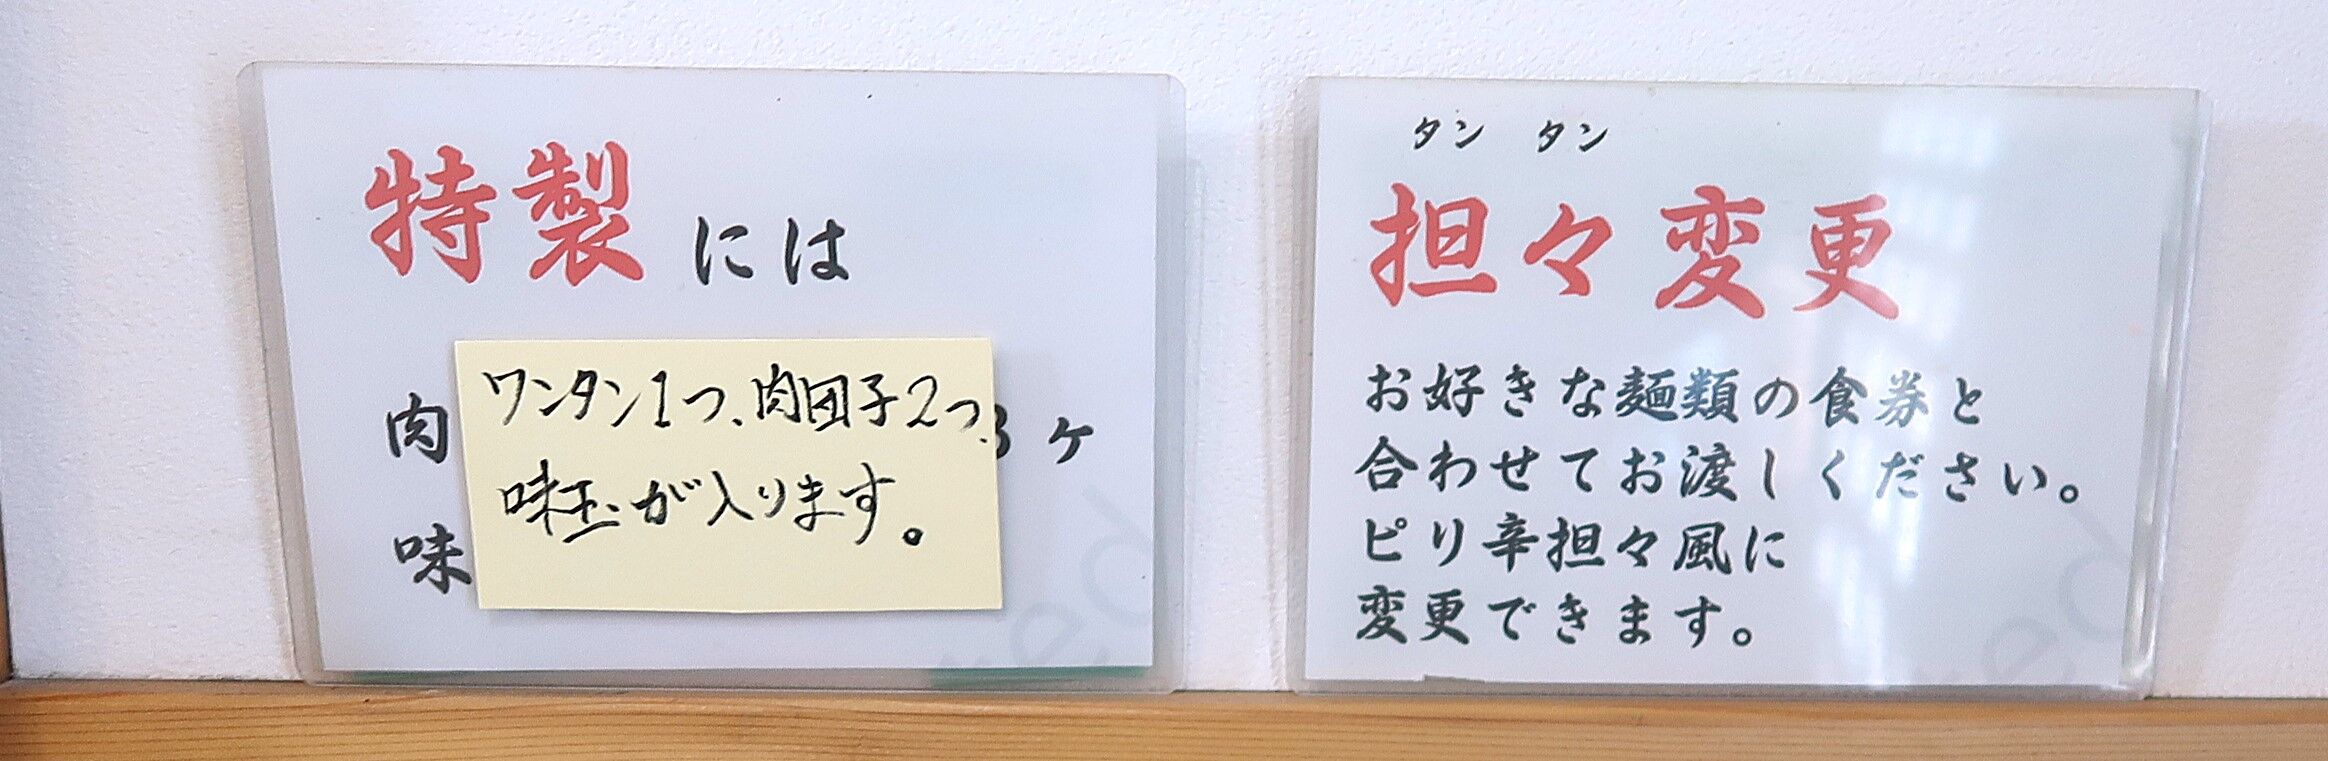 特製には
肉 3ヶ
味
ワンタン1つ、肉団子2つ、
味玉が入ります。
タンタン
担々変更
お好きな麺類の食券と
合わせてお渡しください。
ピリ辛担々風に
変更できます。